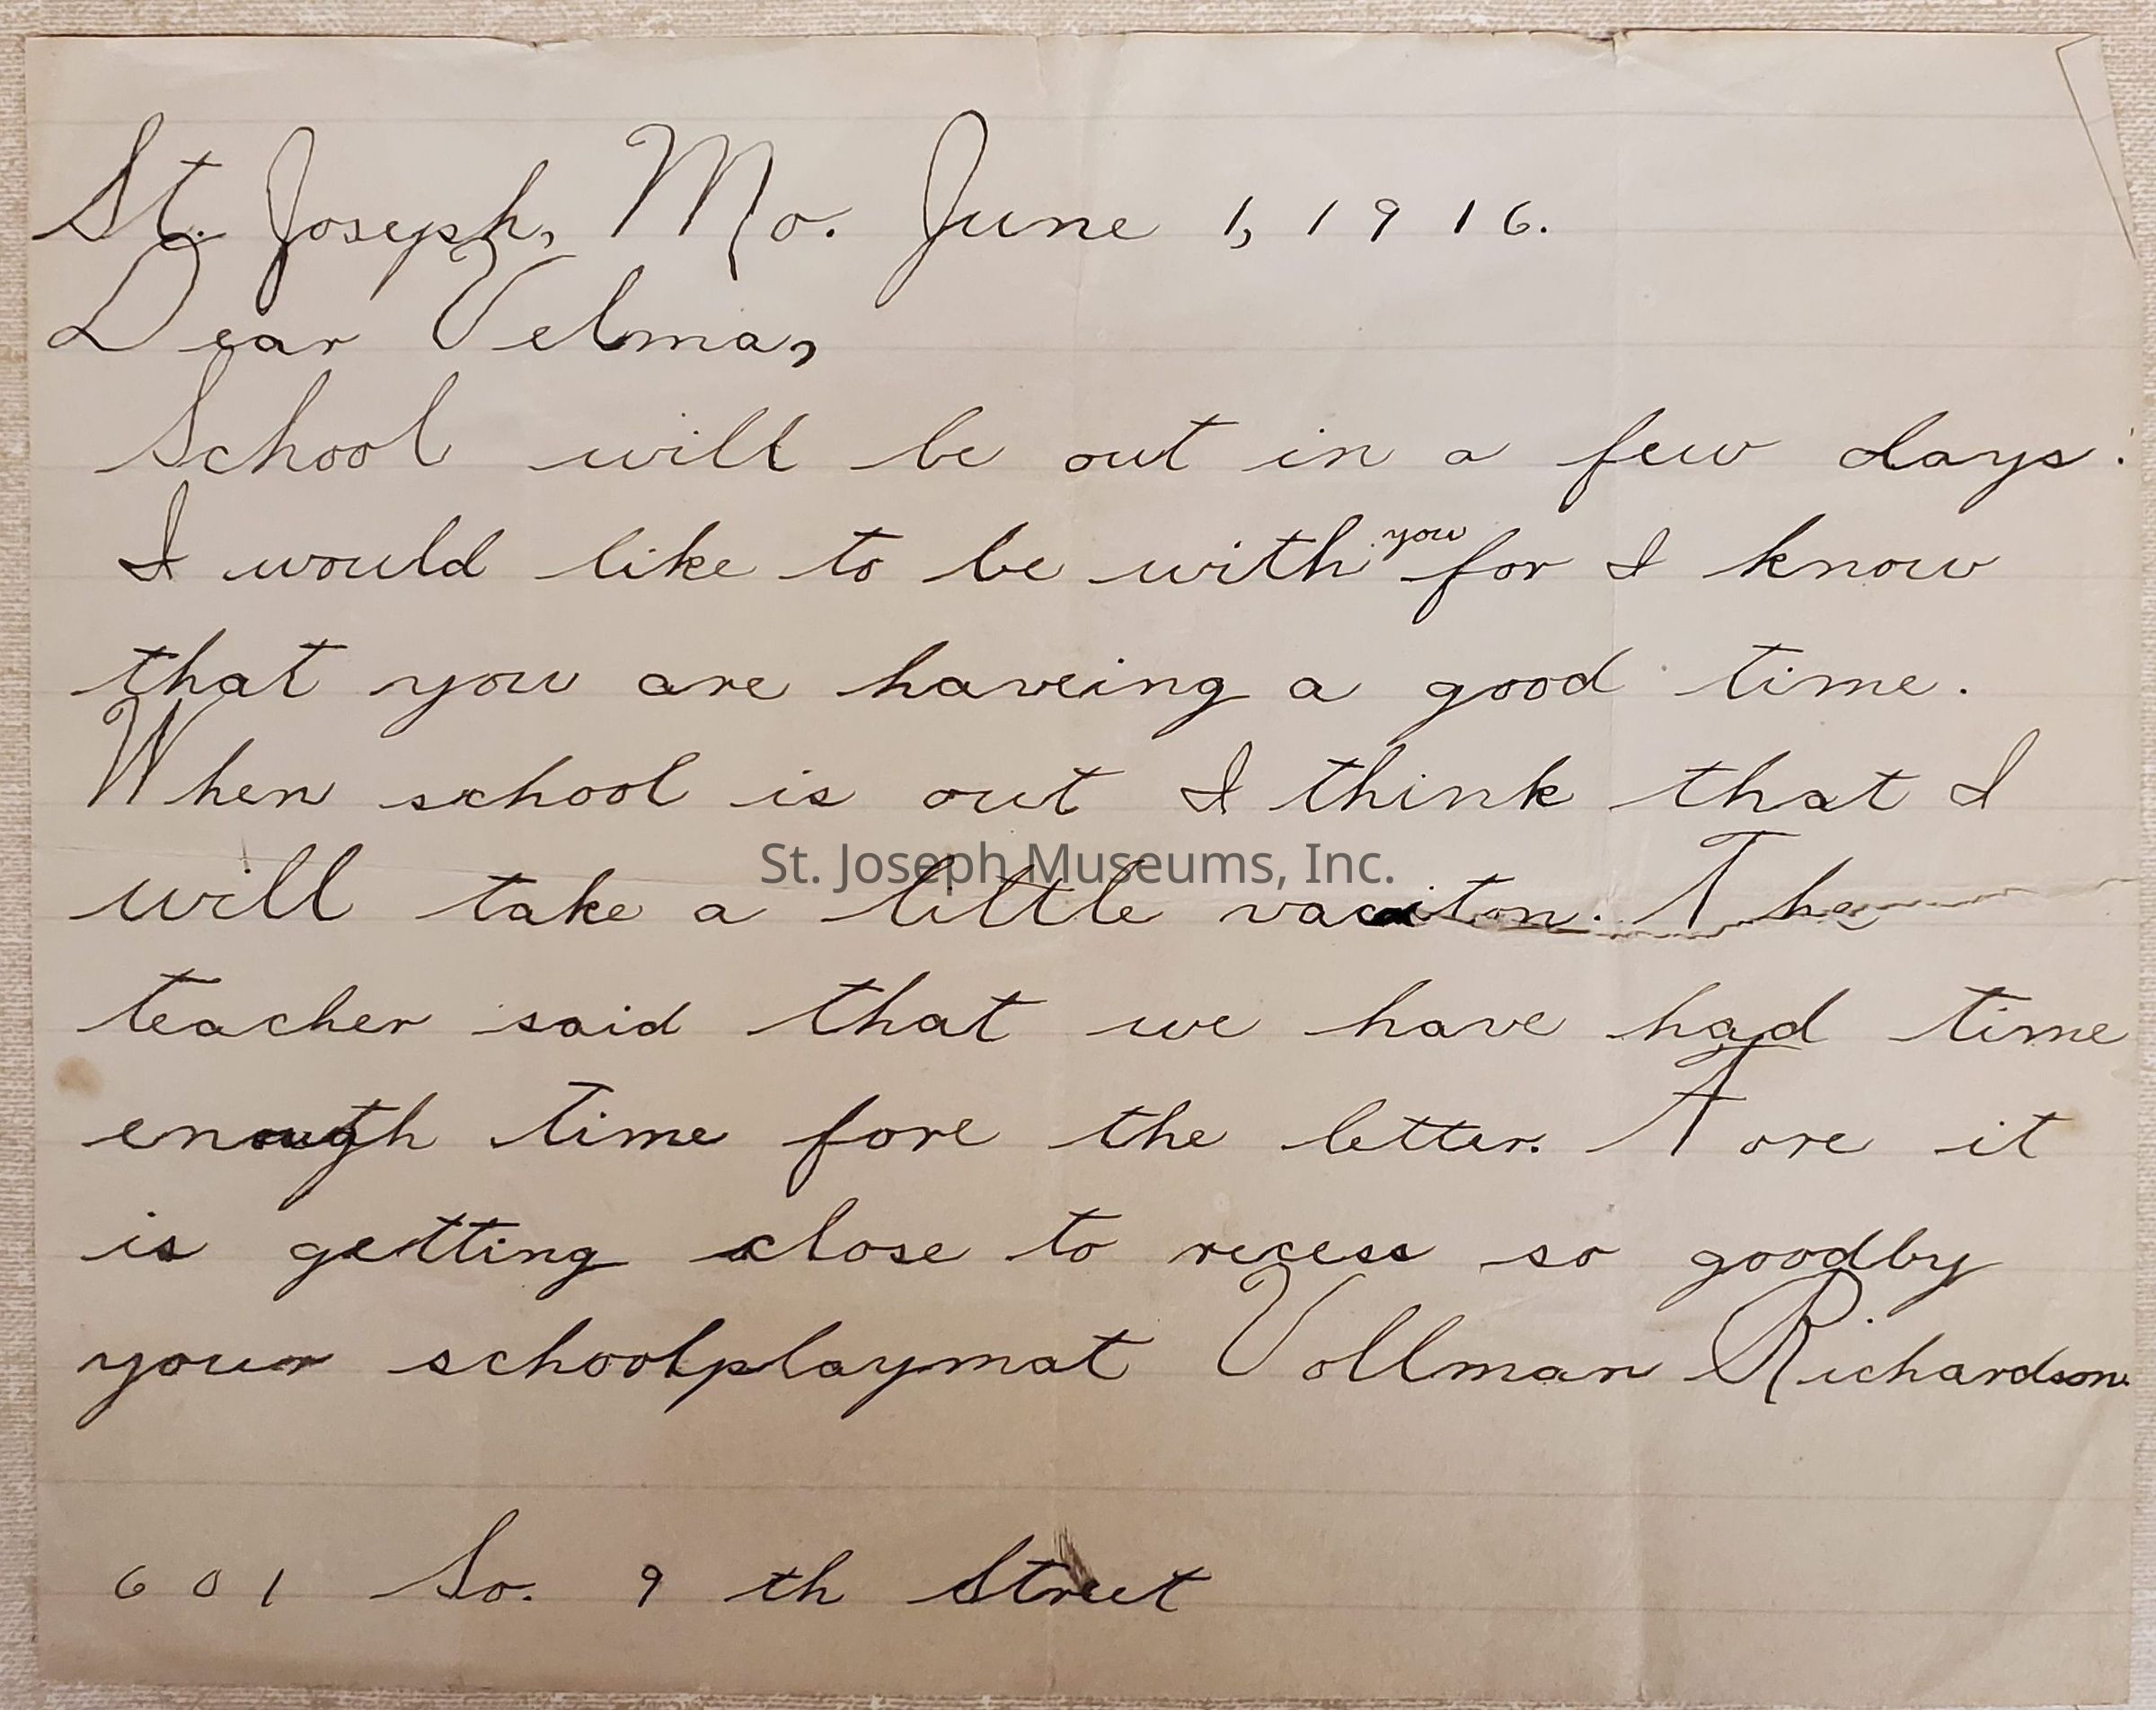 St. Joseph, Mo. June 1, 1916.
Dear Velma,
School will be out in a few days.
I would like to be with you for I know
that you are haveing a good time.
When school is out I think that I
St. Joseph Museums, Inc.
will take a little vaciton. The
teacher said that we have had time
enough time fore the letter. Fore it
is getting close to recess so goodby
your schoolplaymat Vollman Richardson.
601 So. 9 th Street